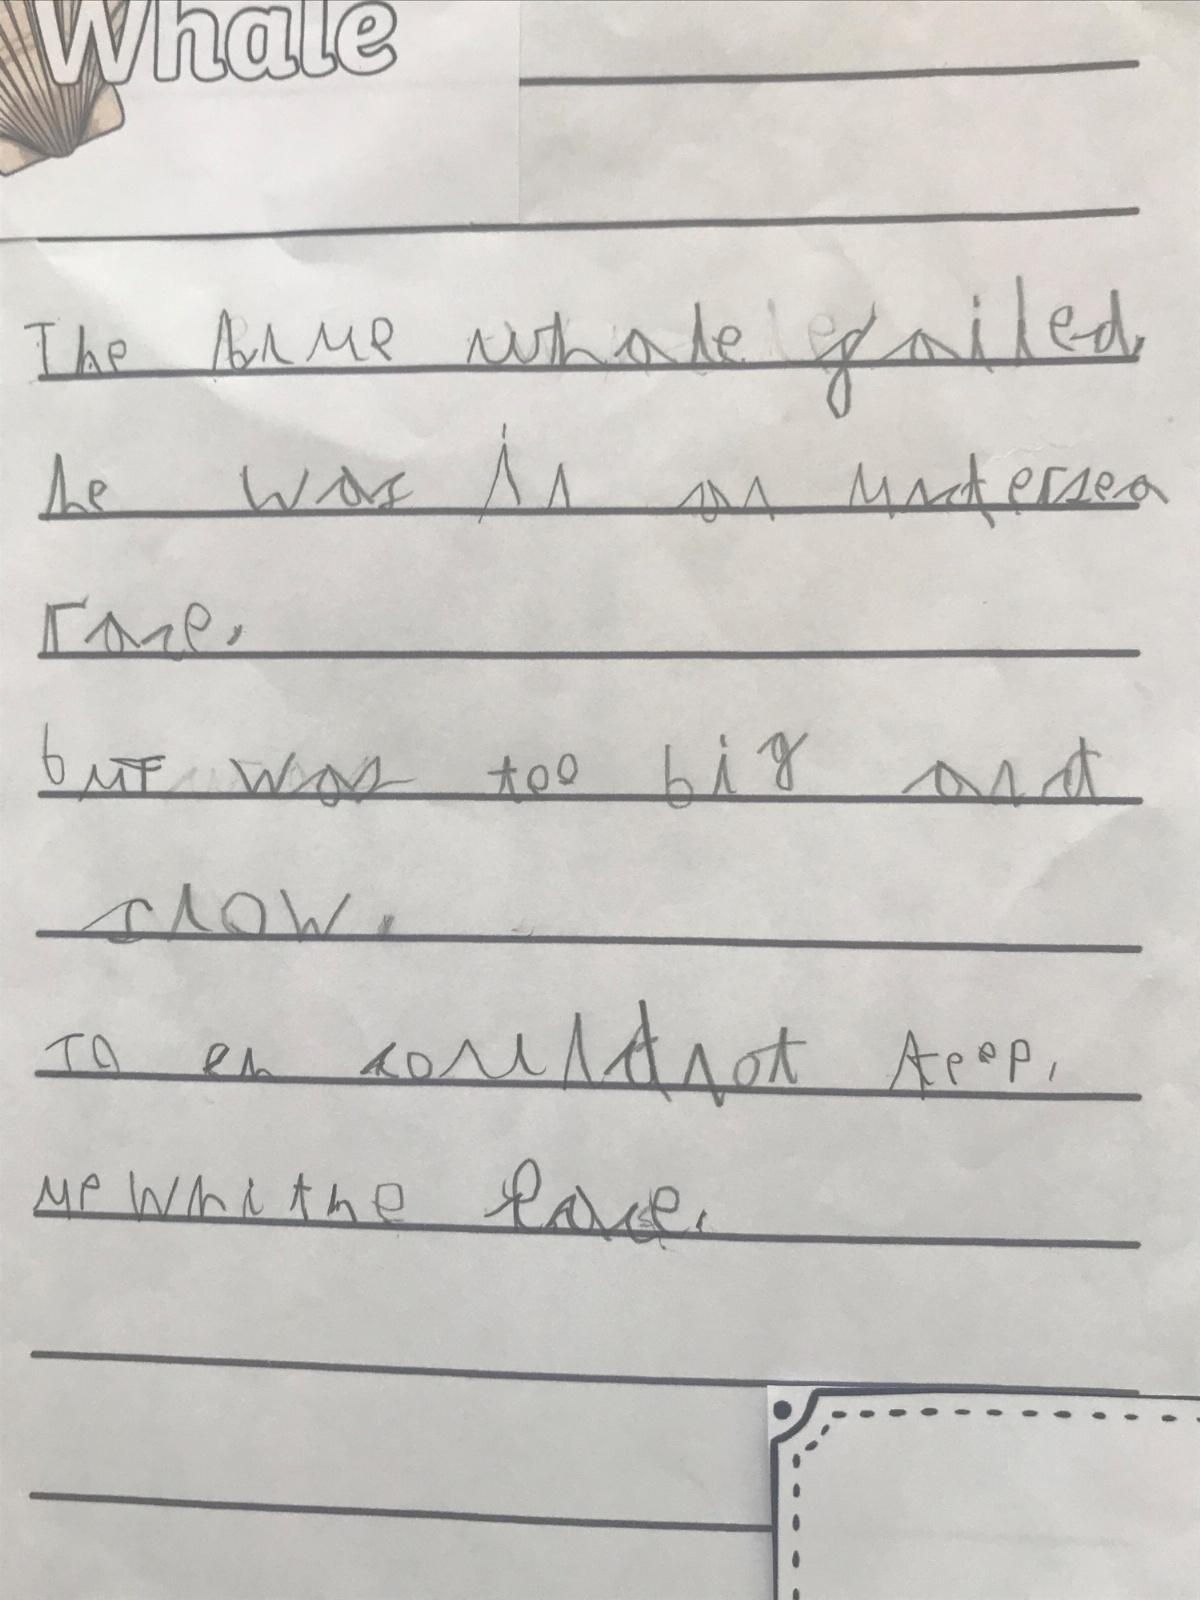 Whale
The blue whale failed,
he was in an undersea
race.
but was too big and
slow.
so eh couldnot keep.
up whithe Pace.